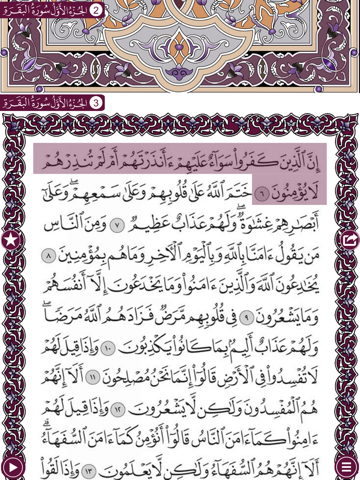 الجزء الأول سورة البقرة 2
الجزء الأول سورة البقرة 3
إِنَّ ٱلَّذِينَ كَفَرُوا۟ سَوَآءٌ عَلَيْهِمْ ءَأَنذَرْتَهُمْ أَمْ لَمْ تُنذِرْهُمْ
لَا يُؤْمِنُونَ ٦ خَتَمَ ٱللَّهُ عَلَىٰ قُلُوبِهِمْ وَعَلَىٰ سَمْعِهِمْ ۖ وَعَلَىٰٓ
أَبْصَٰرِهِمْ غِشَٰوَةٌ ۖ وَلَهُمْ عَذَابٌ عَظِيمٌ ٧ وَمِنَ ٱلنَّاسِ
مَن يَقُولُ ءَامَنَّا بِٱللَّهِ وَبِٱلْيَوْمِ ٱلْءَاخِرِ وَمَا هُم بِمُؤْمِنِينَ ٨
يُخَٰدِعُونَ ٱللَّهَ وَٱلَّذِينَ ءَامَنُوا۟ وَمَا يَخْدَعُونَ إِلَّآ أَنفُسَهُمْ
وَمَا يَشْعُرُونَ ٩ فِى قُلُوبِهِم مَّرَضٌ فَزَادَهُمُ ٱللَّهُ مَرَضًا ۖ
وَلَهُمْ عَذَابٌ أَلِيمٌۢ بِمَا كَانُوا۟ يَكْذِبُونَ ١٠ وَإِذَا قِيلَ لَهُمْ
لَا تُفْسِدُوا۟ فِى ٱلْأَرْضِ قَالُوٓا۟ إِنَّمَا نَحْنُ مُصْلِحُونَ ١١ أَلَآ إِنَّهُمْ
هُمُ ٱلْمُفْسِدُونَ وَلَٰكِن لَّا يَشْعُرُونَ ١٢ وَإِذَا قِيلَ لَهُمْ
ءَامِنُوا۟ كَمَآ ءَامَنَ ٱلنَّاسُ قَالُوٓا۟ أَنُؤْمِنُ كَمَآ ءَامَنَ ٱلسُّفَهَآءُ ۗ
أَلَآ إِنَّهُمْ هُمُ ٱلسُّفَهَآءُ وَلَٰكِن لَّا يَعْلَمُونَ ١٣ وَإِذَا لَقُوا۟